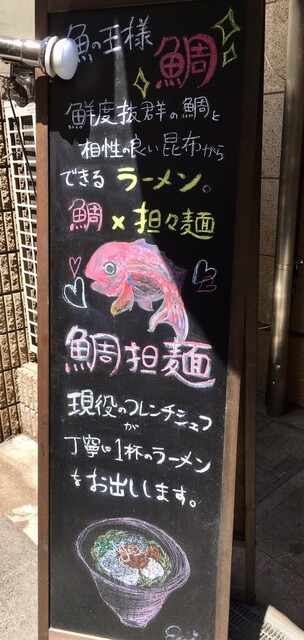 魚の王様
鯛
鮮度抜群の鯛と
相性の良い昆布から
できるラーメン。
鯛×担々麺
鯛担麺
現役のフレンチシェフ
が
丁寧に1杯のラーメン
をお出しします。